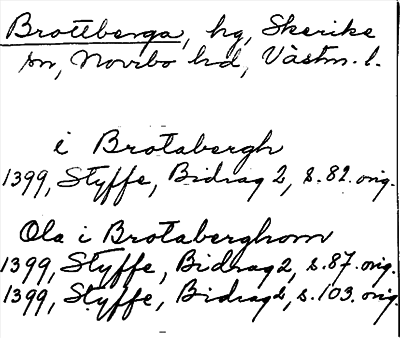 Brottberga, hg, Skerike
sn, Norrbo hd, Västm. l.
i Brotabergh
1399, Styffe, Bidrag 2, s. 82. orig.
Ola i Brotaberghom
1399, Styffe, Bidrag 2, s. 87. orig.
1399, Styffe, Bidrag 2, s. 103. orig.